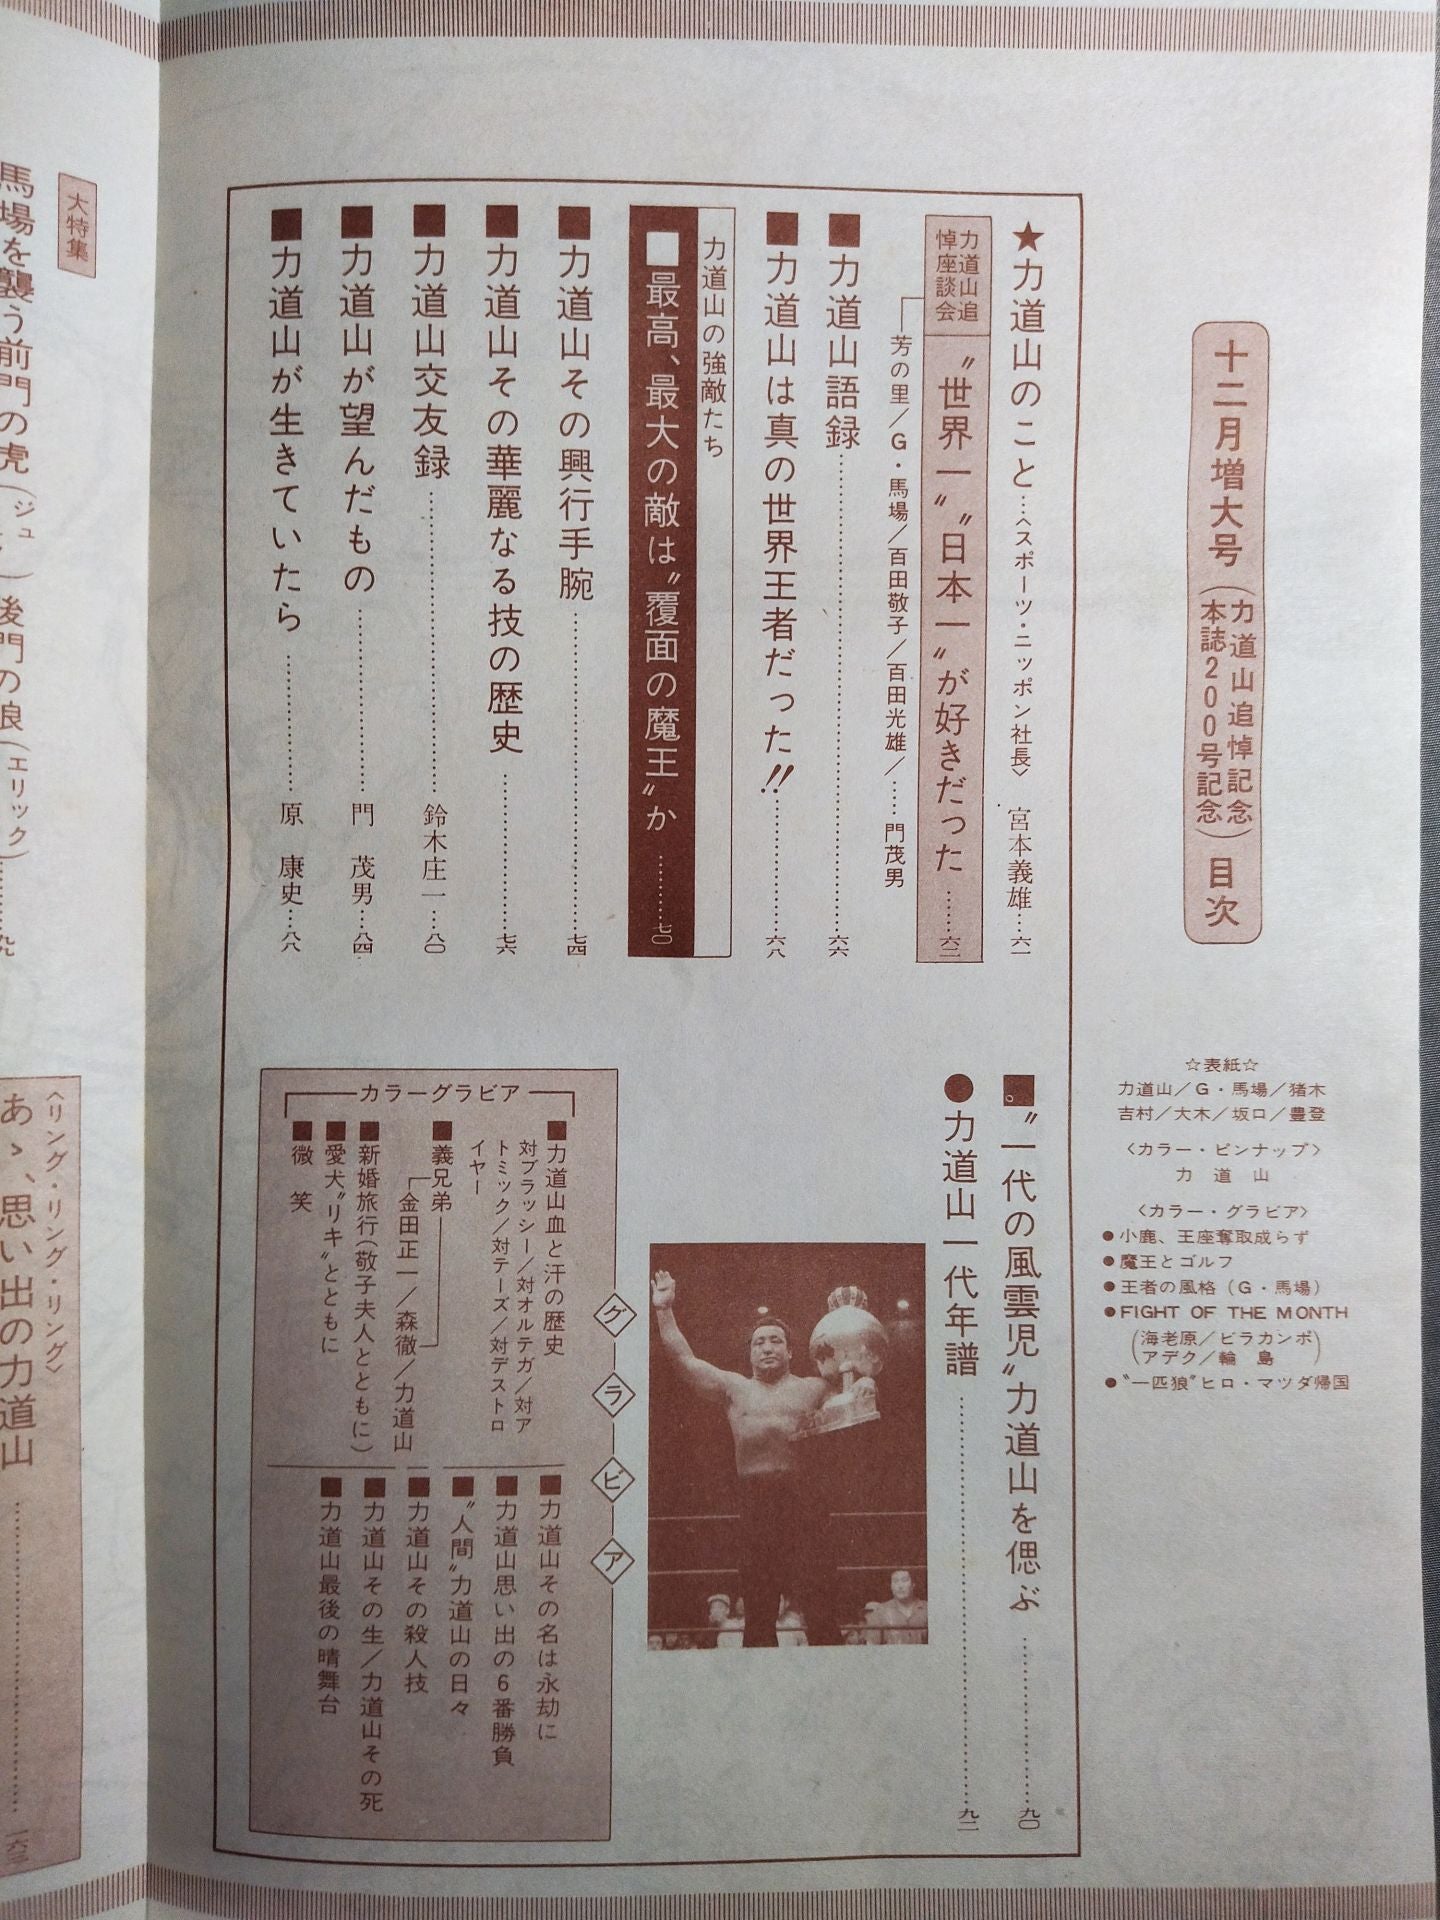 十二月増大号(力道山追悼記念
本誌200号記念)目次
☆表紙☆
力道山/G・馬場/猪木
吉村/大木/坂口/豊登
〈カラー・ピンナップ〉
力道山
〈カラー・グラビア〉
●小鹿、王座奪取成らず
●魔王とゴルフ
●王者の風格(G・馬場)
●FIGHT OF THE MONTH
(海老原/ビラカンポ
アデク/輪島)
●〝一匹狼〟ヒロ・マツダ帰国
★力道山のこと…〈スポーツ・ニッポン社長〉宮本義雄…六一
力道山追
悼座談会
〝世界一〟〝日本一〟が好きだった……六二
芳の里/G・馬場/百田敬子/百田光雄/……門茂男
■力道山語録……六六
■力道山は真の世界王者だった!!……六八
力道山の強敵たち
■最高、最大の敵は〝覆面の魔王〟か……七〇
■力道山その興行手腕……七四
■力道山その華麗なる技の歴史……七六
■力道山交友録……鈴木庄一…八〇
■力道山が望んだもの……門 茂男…八四
■力道山が生きていたら……原 康史…八八
■〝一代の風雲児〟力道山を偲ぶ……九〇
●力道山一代年譜……九二
グラビア
カラーグラビア
■力道山血と汗の歴史
対ブラッシー/対オルテガ/対ア
トミック/対テーズ/対デストロ
イヤー
■義兄弟
金田正一/森徹/力道山
■新婚旅行(敬子夫人とともに)
■愛犬〝リキ〟とともに
■微笑
■力道山その名は永劫に
■力道山思い出の6番勝負
■〝人間〟力道山の日々
■力道山その殺人技
■力道山その生/力道山その死
■力道山最後の晴舞台
大特集
馬場を襲う前門の虎(ジュ 後門の狼(エリック)……九九
〈リング・リング・リング〉
あゝ、思い出の力道山……一六三